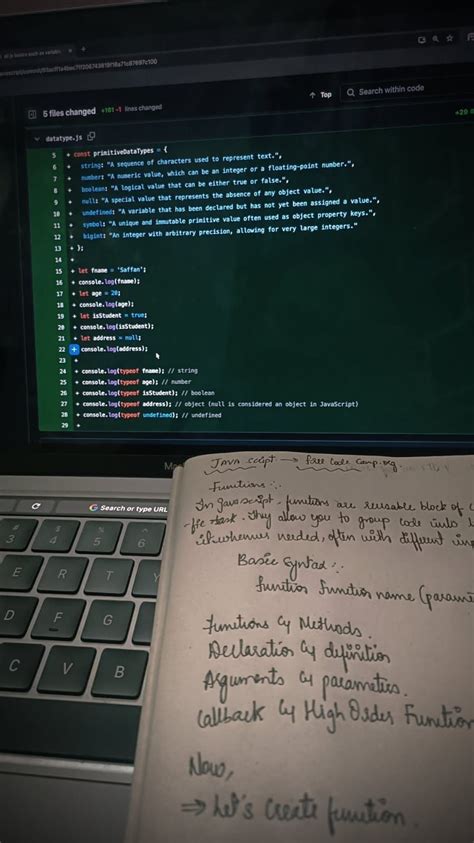 5 files changed +101 -1 lines changed
Top
Search within code
datatype.js
5 + const primitiveDataTypes = {
6 + string: "A sequence of characters used to represent text.",
7 + number: "A numeric value, which can be an integer or a floating-point number.",
8 + boolean: "A logical value that can be either true or false.",
9 + null: "A special value that represents the absence of any object value.",
10 + undefined: "A variable that has been declared but has not yet been assigned a value.",
11 + symbol: "A unique and immutable primitive value often used as object property keys.",
12 + bigint: "An integer with arbitrary precision, allowing for very large integers."
13 + };
14 +
15 + let fname = 'Saffan';
16 + console.log(fname);
17 + let age = 20;
18 + console.log(age);
19 + let isStudent = true;
20 + console.log(isStudent);
21 + let address = null;
22 + console.log(address);
23 +
24 + console.log(typeof fname); // string
25 + console.log(typeof age); // number
26 + console.log(typeof isStudent); // boolean
27 + console.log(typeof address); // object (null is considered an object in JavaScript)
28 + console.log(typeof undefined); // undefined
29 +
Search or type URL
# 3 $ 4 % 5 ^ 6
E R T Y
D F G
C V B
JAVA script → free Code Camp.org.
Functions :.
In Javascript, functions are reusable block of
task. They allow you to group code into
needed, often with different
Basic Syntax :.
function function name (parame
Functions & Methods.
Declaration & definition
Arguments & parameters.
Callback & High Order Function
Now,
⇒ Let's create function.